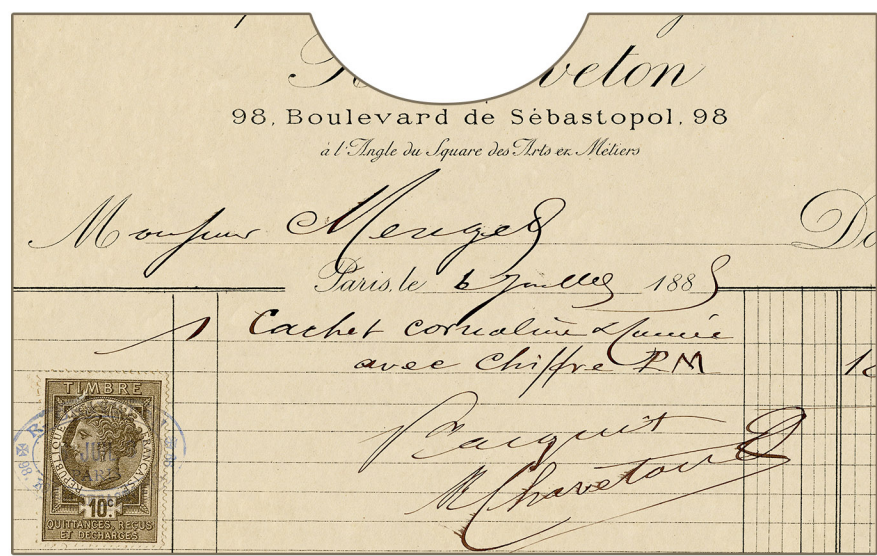 98, Boulevard de Sébastopol, 98
à l'Angle du Square des Arts et Métiers
Monsieur Menged
Paris, le 6 Juillet 1885
1 Cachet cornaline & fumée
avec Chiffre PM
Pr acquit
R Chaveton
TIMBRE
RÉPUBLIQUE FRANÇAISE
10c
QUITTANCES, REÇUS
ET DÉCHARGES